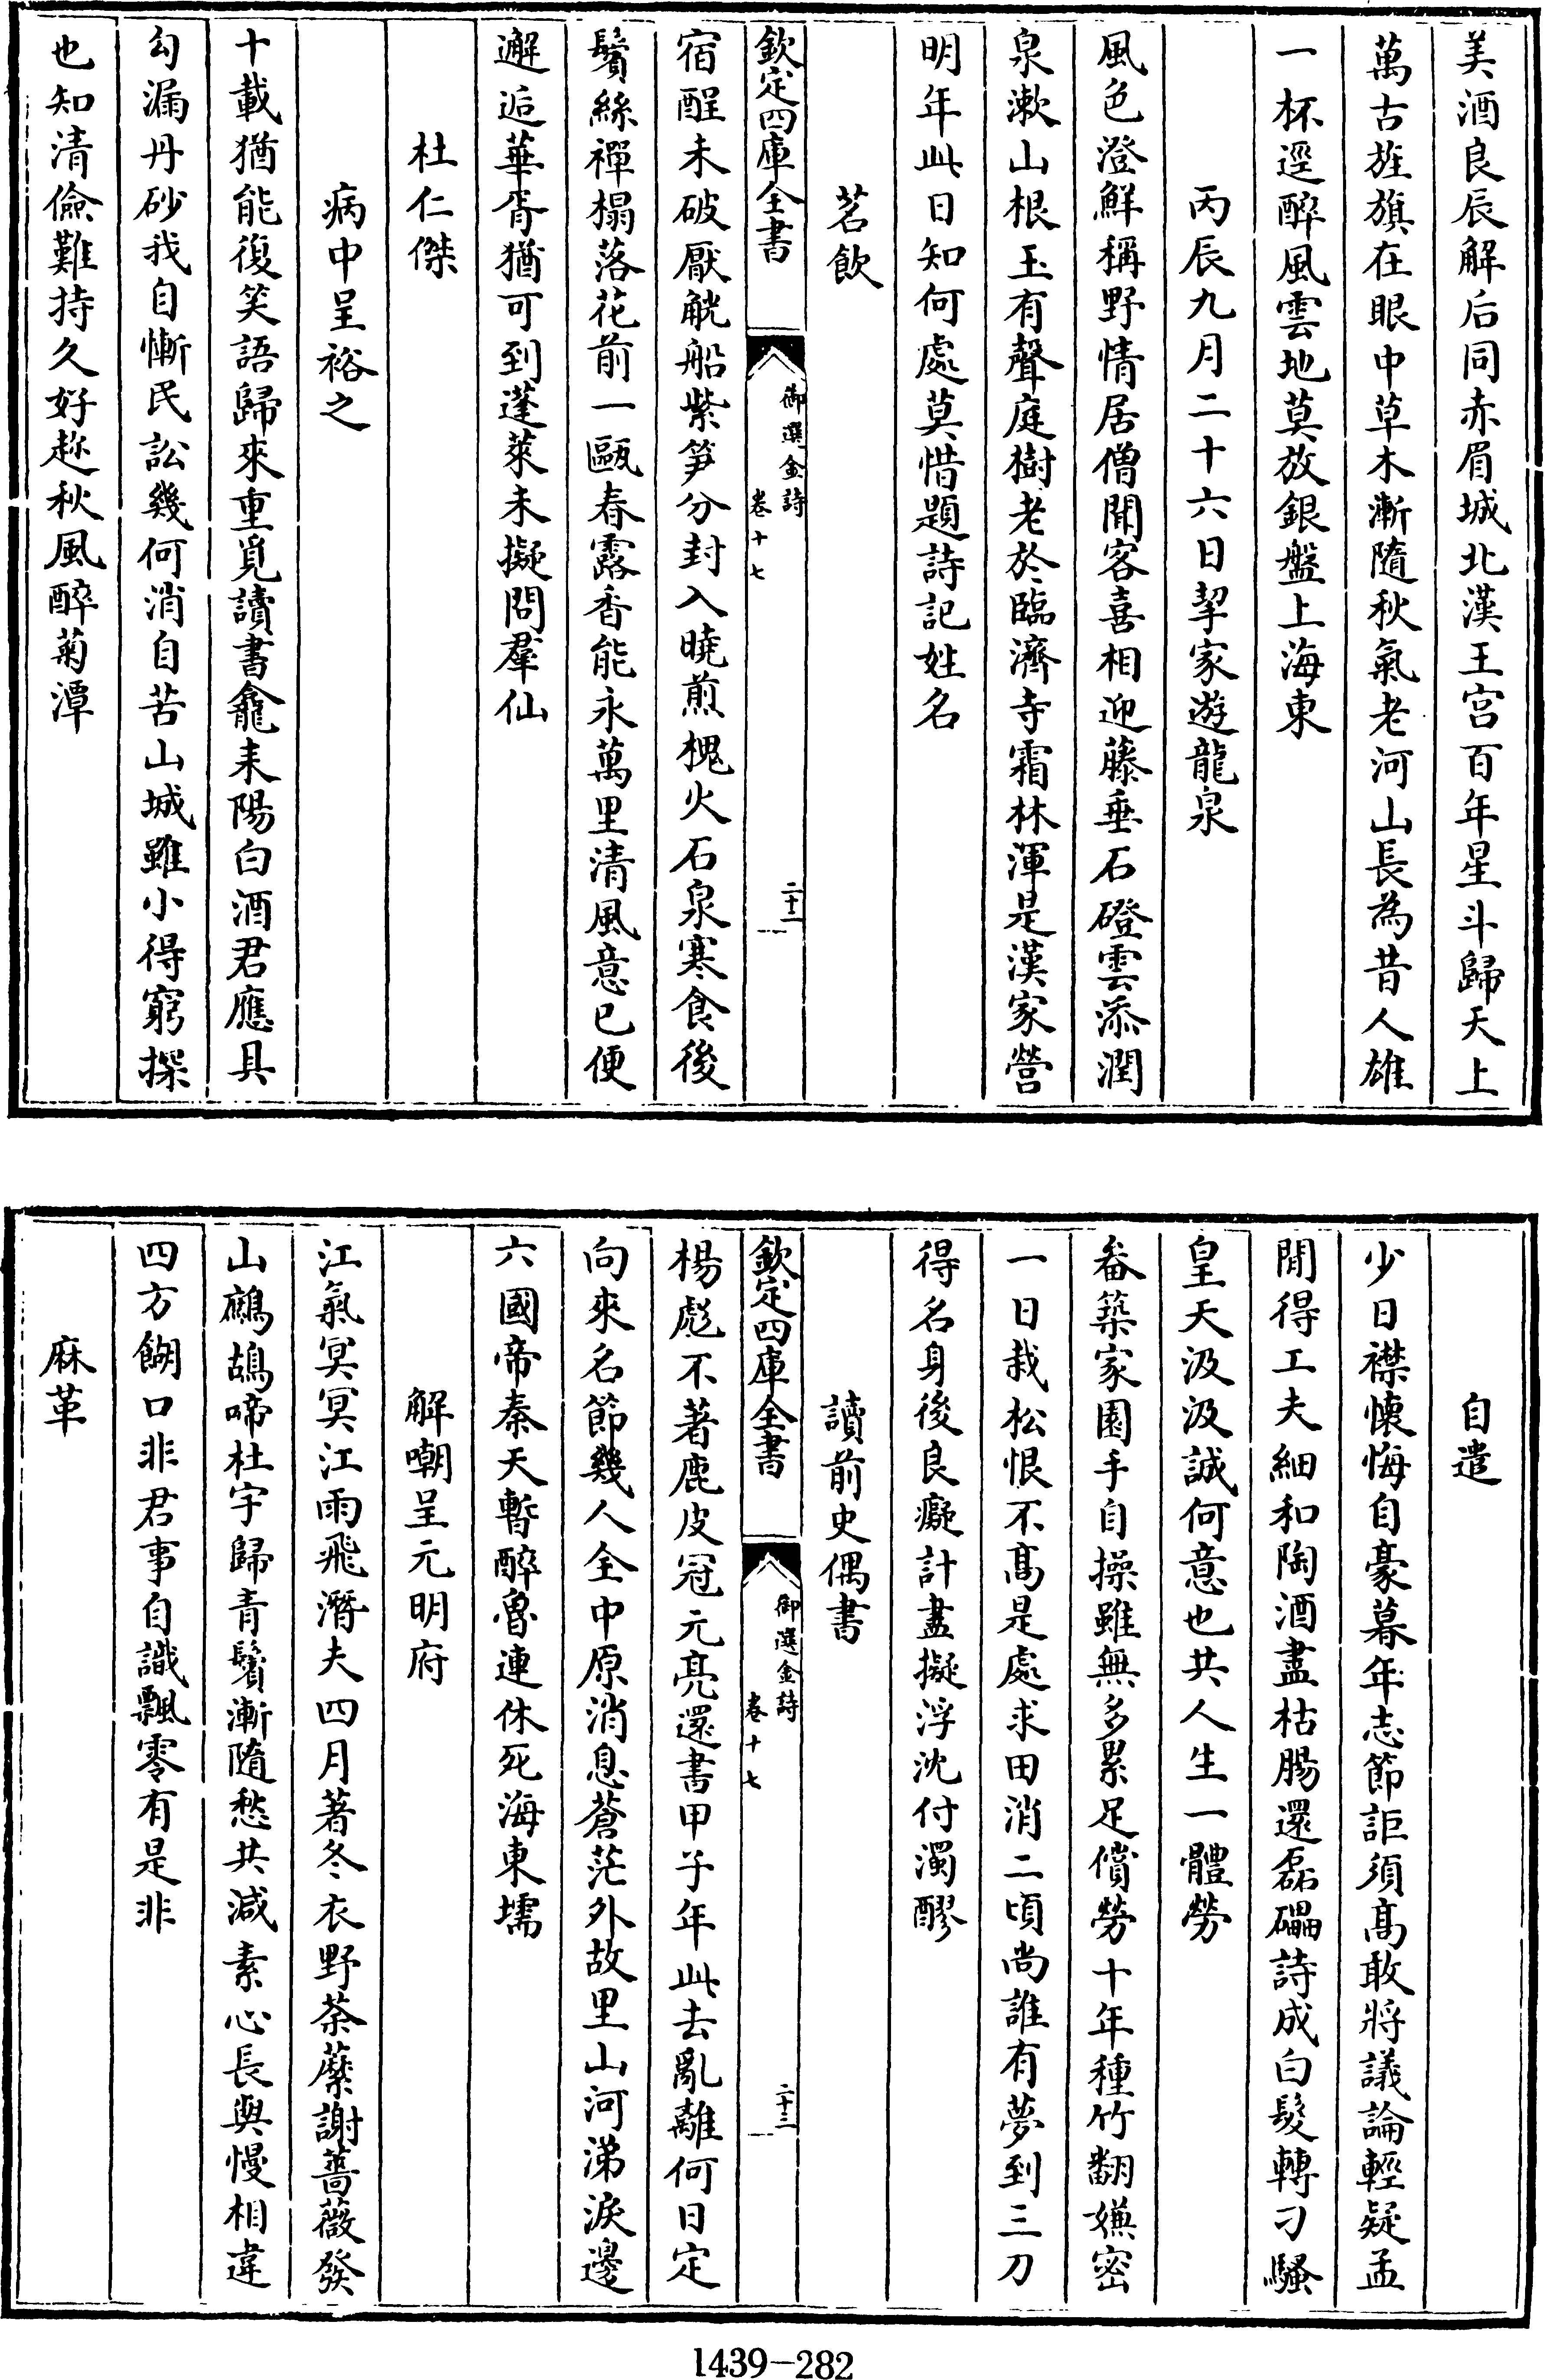 美酒良辰解后同赤眉城北漢王宫百年星斗歸天上
萬古旌旗在眼中草木漸隨秋氣老河山長為昔人雄
一杯逕醉風雲地莫放銀盤上海東
丙辰九月二十六日挈家遊龍泉
風色澄鮮稱野情居僧聞客喜相迎藤垂石磴雲添潤
泉漱山根玉有聲庭樹老於臨濟寺霜林渾是漢家營
明年此日知何處莫惜題詩記姓名
茗飲
欽定四庫全書
御選金詩
卷十七
二十二
宿酲未破厭觥船紫笋分封入曉煎槐火石泉寒食後
鬢絲禪榻落花前一甌春露香能永萬里清風意已便
邂逅華胥猶可到蓬萊未擬問羣仙
杜仁傑
病中呈裕之
十載猶能復笑語歸來重覓讀書龕耒陽白酒君應具
勾漏丹砂我自慚民訟幾何消自苦山城雖小得窮探
也知清儉難持久好趂秋風醉菊潭
自遣
少日襟懷悔自豪暮年志節詎須髙敢將議論輕疑孟
閒得工夫細和陶酒盡枯腸還磊礧詩成白髮轉刁騷
皇天汲汲誠何意也共人生一體勞
畚築家園手自操雖無多累足償勞十年種竹翻嫌密
一日栽松恨不髙是處求田消二頃尚誰有夢到三刀
得名身後良癡計盡擬浮沈付濁醪
讀前史偶書
欽定四庫全書
御選金詩
卷十七
二十三
楊彪不著鹿皮冠元亮還書甲子年此去亂離何日定
向來名節幾人全中原消息蒼茫外故里山河涕淚邊
六國帝秦天暫醉魯連休死海東壖
解嘲呈元明府
江氣冥冥江雨飛潛夫四月著冬衣野荼蘼謝薔薇發
山鷓鴣啼杜宇歸青鬢漸隨愁共減素心長與慢相違
四方餬口非君事自識飄零有是非
麻革
1439-282